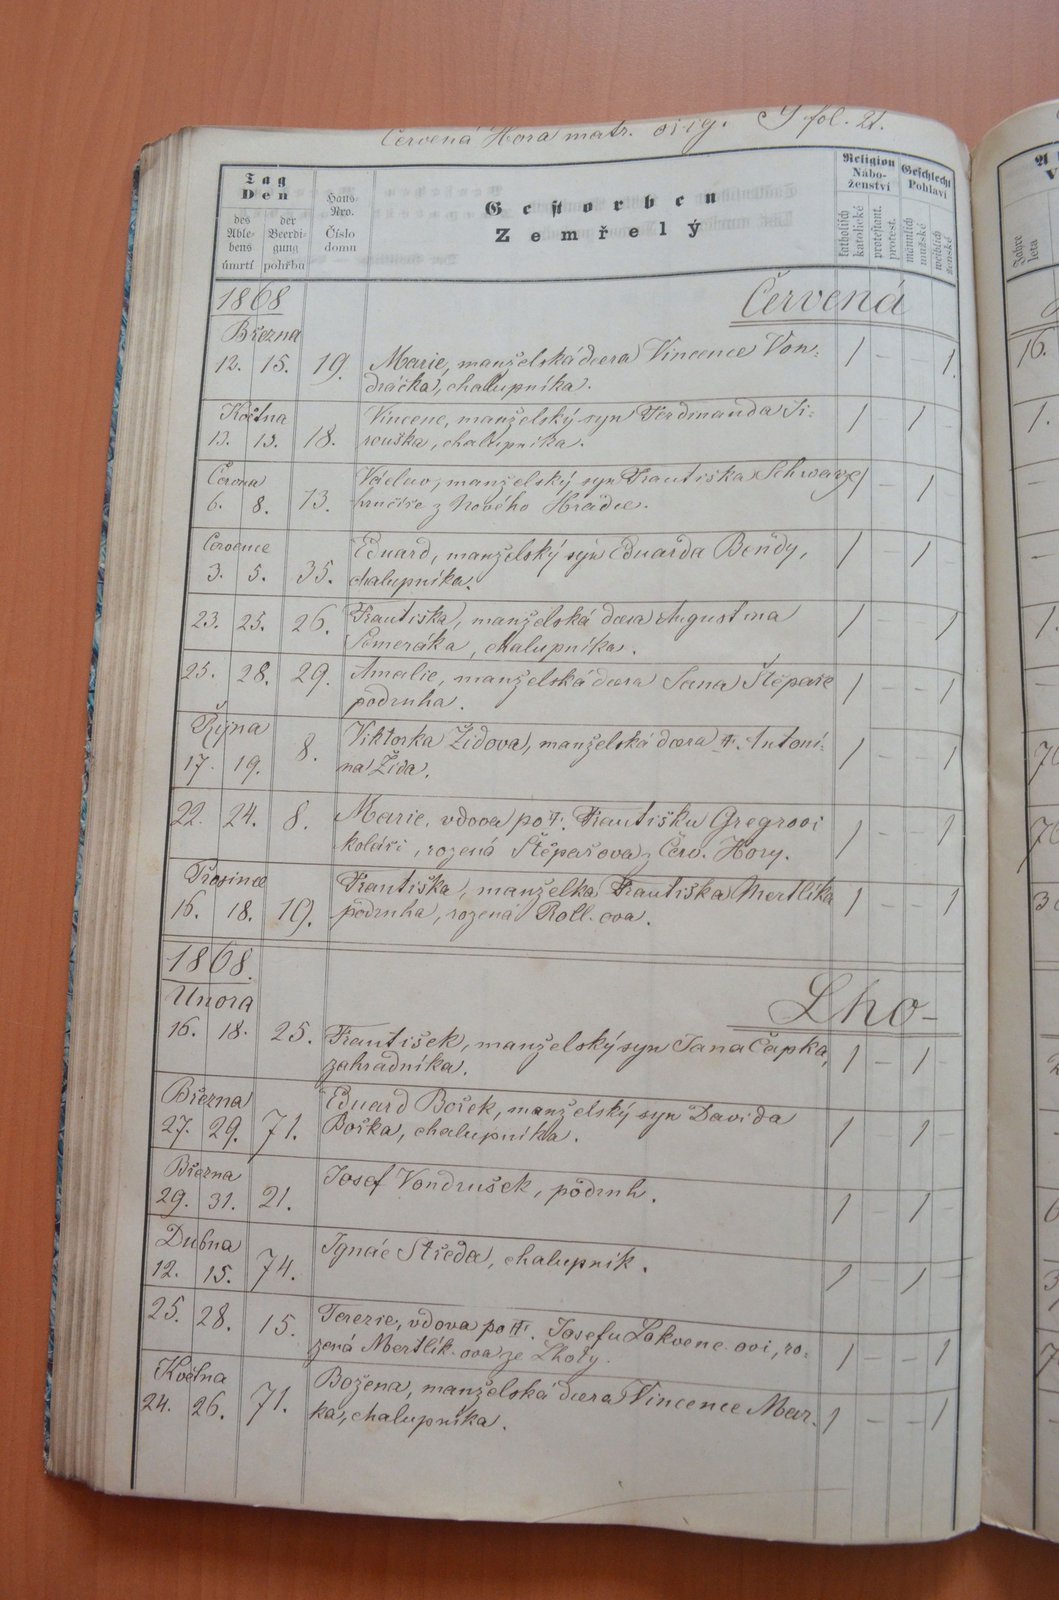 Červená Hora matr. orig. I fol. 21.
Tag
Den
des Ablebens
úmrtí
der Beerdigung
pohřbu
Haus-Nro.
Číslo domu
Gestorben
Zemřelý
Religion
Náboženství
katholisch
katolické
protestant.
protest.
Geschlecht
Pohlaví
männlich
mužské
weiblich
ženské
Jahre
leta
1868
Červená
Března
12. 15. 19. Marie, manželská dcera Vincence Von-
dráčka, chalupníka. 1 – – 1
16.
Května
13. 13. 18. Vincenc, manželský syn Ferdinanda Ji-
rouška, chalupníka. 1 – 1 –
1.
Června
6. 8. 13. manželský syn Františka Schwarz
z Nového Hrádce. 1 – 1 –
Července
3. 5. 35. Eduard, manželský syn Eduarda Bendy,
chalupníka. 1 – 1 –
23. 25. 26. Františka, manželská dcera Augustina
Semeráka, chalupníka. 1 – – 1
1.
25. 28. 29. Amalie, manželská dcera Jana
podruha. 1 – – 1
Října
17. 19. 8. Viktorka Židova, manželská dcera †. Antoní-
na Žida. 1 – – 1
22. 24. 8. Marie, vdova po †. Františku Gregrovi
koláři, rozená Štěpařova z Červ. Hory. 1 – – 1
Prosince
16. 18. 19. Františka, manželka Františka Mertlíka
podruha, rozená Roll-ova. 1 – – 1
1868.
Lho-
Února
16. 18. 25. František, manželský syn Jana Čapka,
zahradníka. 1 – 1 –
Března
27. 29. 71. Eduard Bořek, manželský syn Davida
Bořka, chalupníka. 1 – 1 –
Března
29. 31. 21. Josef Vondrušek, podruh. 1 – 1 –
Dubna
12. 15. 74. Ignác Středa, chalupník. 1 – 1 –
25. 28. 15. Terezie, vdova po †. Josefu Lokvenc-ovi, ro-
zená Mertlík-ova ze Lhoty. 1 – – 1
Května
24. 26. 71. Božena, manželská dcera Vincence Mar-
ka, chalupníka. 1 – – 1